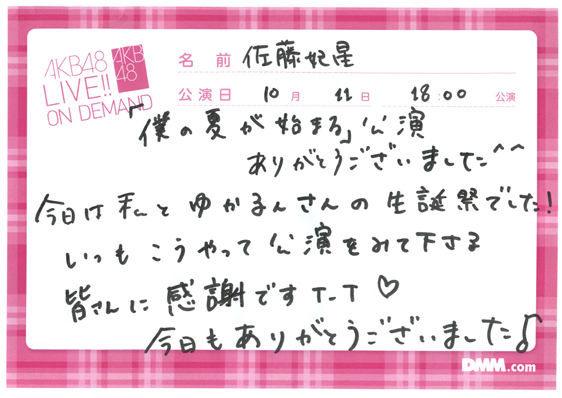 AKB48
LIVE!!
ON DEMAND
AKB
48
名前 佐藤妃星
公演日 10月 11日 18:00 公演
「僕の夏が始まる」公演
ありがとうございました^^
今日は私とゆかるんさんの生誕祭でした!
いつもこうやって公演をみて下さる
皆さんに感謝ですT_T♡
今日もありがとうございました♪
DMM.com